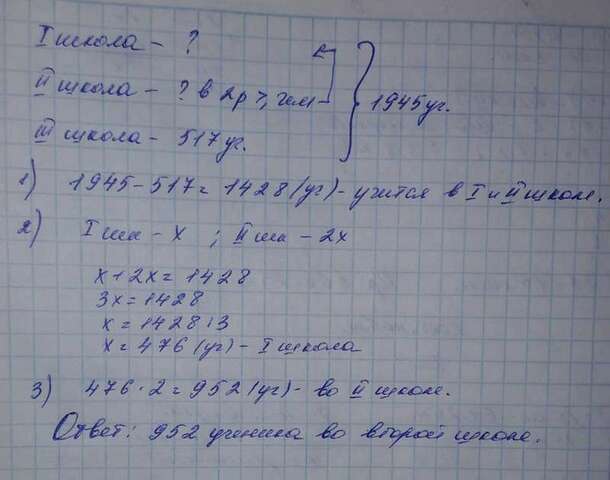 I школа - ?
II школа - ? в 2р >, чем
III школа - 517 уч.
1945 уч.
1) 1945 - 517 = 1428 (уч) - учится в I и II школ.
2) I шк - x ; II шк - 2x
x + 2x = 1428
3x = 1428
x = 1428 : 3
x = 476 (уч) - I школа
3) 476 · 2 = 952 (уч) - во II школ.
Ответ: 952 ученика во второй школе.